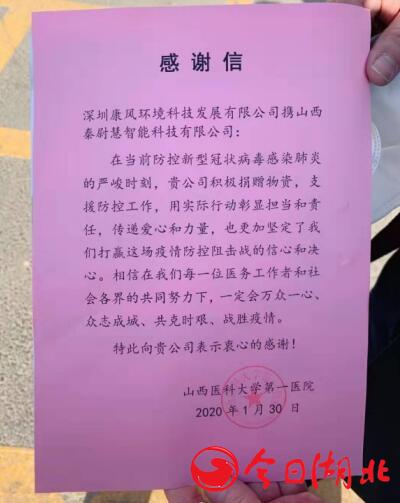 感谢信
深圳康风环境科技发展有限公司携山西
秦尉慧智能科技有限公司：
在当前防控新型冠状病毒感染肺炎
的严峻时刻，贵公司积极捐赠物资，支
援防控工作，用实际行动彰显担当和责
任，传递爱心和力量，也更加坚定了我
们打赢这场疫情防控阻击战的信心和决
心。相信在我们每一位医务工作者和社
会各界的共同努力下，一定会万众一心、
众志成城、共克时艰、战胜疫情。
特此向贵公司表示衷心的感谢！
山西医科大学第一医院
2020年1月30日
今日湖北